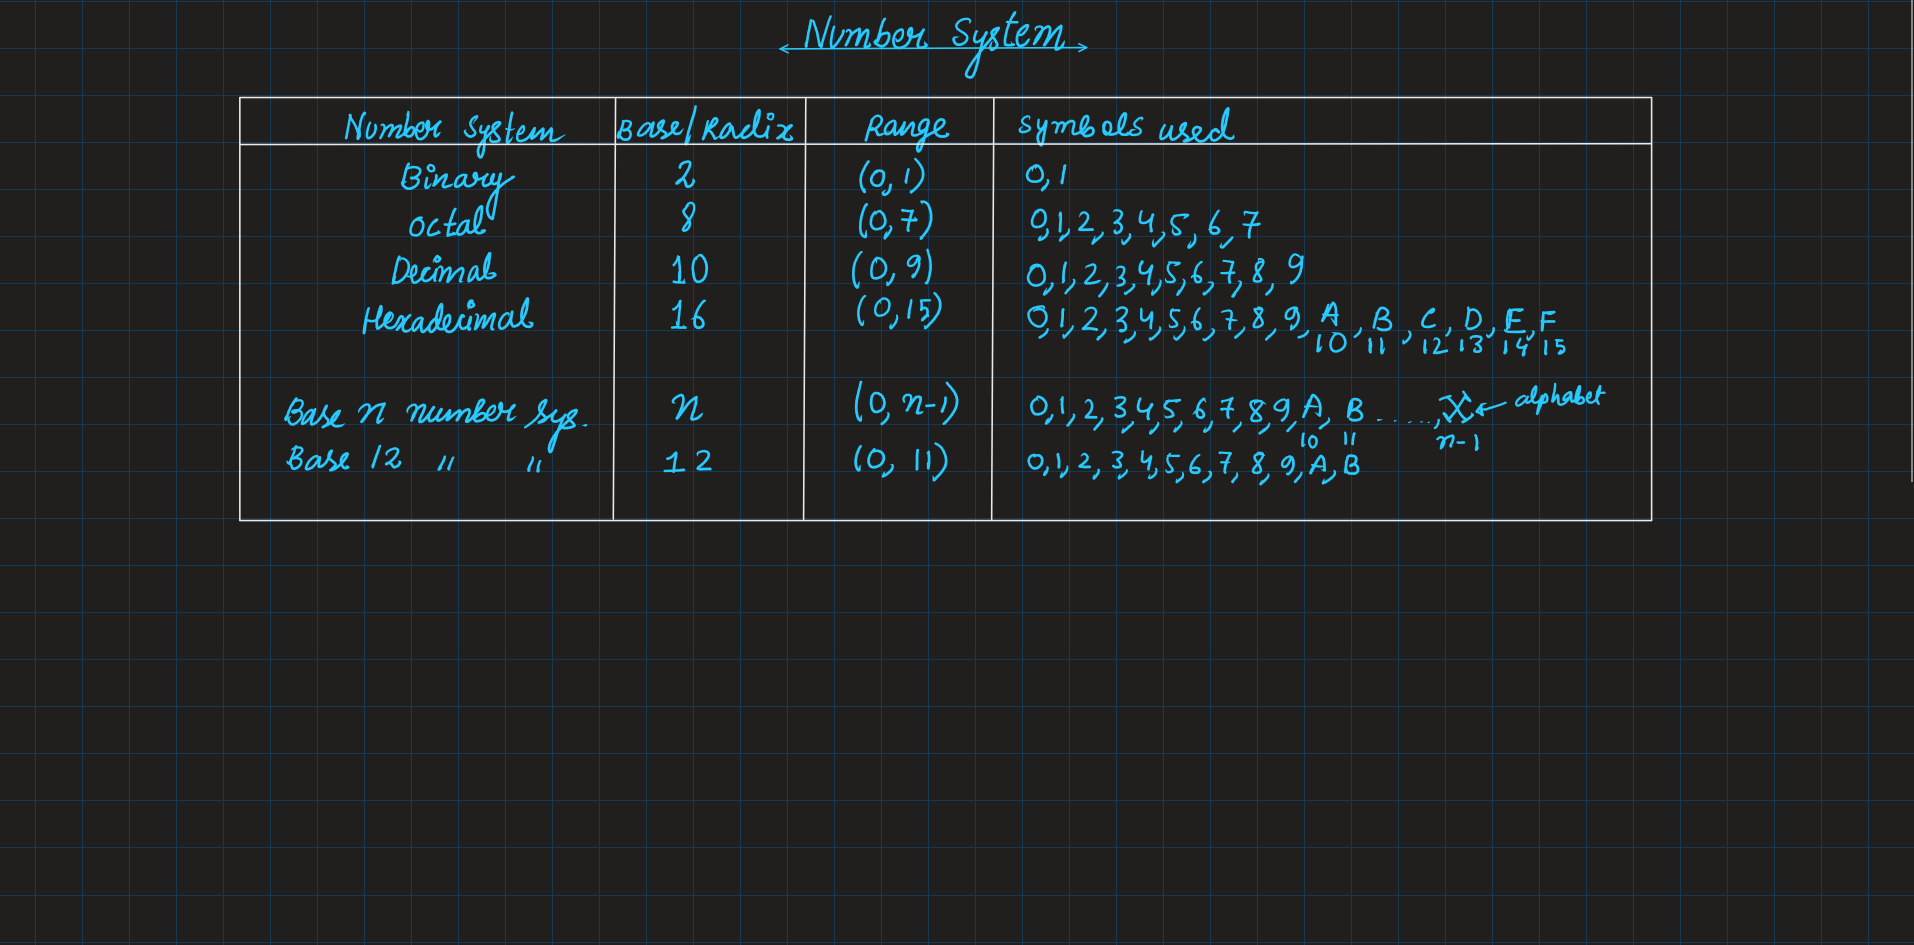 Number System
Number System Base/Radix Range Symbols used
Binary 2 (0, 1) 0, 1
Octal 8 (0, 7) 0, 1, 2, 3, 4, 5, 6, 7
Decimal 10 (0, 9) 0, 1, 2, 3, 4, 5, 6, 7, 8, 9
Hexadecimal 16 (0, 15) 0, 1, 2, 3, 4, 5, 6, 7, 8, 9, A, B, C, D, E, F
10 11 12 13 14 15
Base n number sys. n (0, n-1) 0, 1, 2, 3, 4, 5, 6, 7, 8, 9, A, B ....., X ← alphabet
10 11 n-1
Base 12 " " 12 (0, 11) 0, 1, 2, 3, 4, 5, 6, 7, 8, 9, A, B